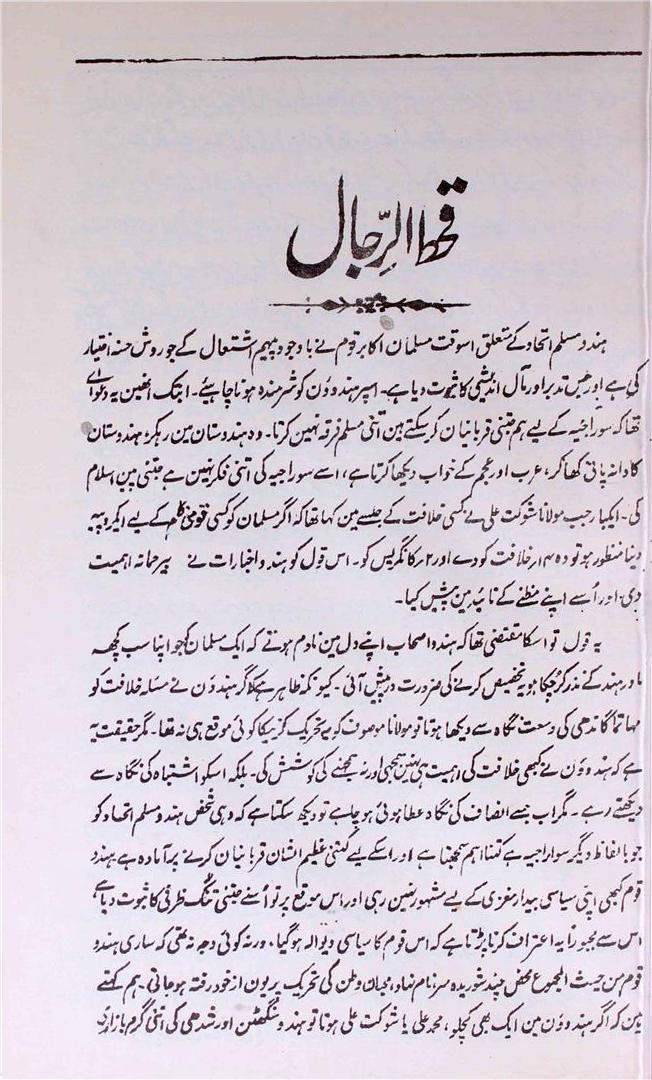 قحط الرّجال
ہندو مسلم اتحاد کے متعلق اسوقت مسلمان اکابر قوم نے باوجود پیہم اشتعال کے جو روش حسنہ اختیار
کی ہے اور جس تدبر اور مآل اندیشی کا ثبوت دیا ہے۔ اسپر ہندوؤن کو شرمندہ ہونا چاہیئے۔ ابتک انھین یہ دعوائے
تھا کہ سوراجیہ کے لیے ہم جتنی قربانیان کر سکتے ہین اتنی مسلم فرقہ نہین کرتا۔ وہ ہندوستان مین رہکر، ہندوستان
کا دانہ پانی کھا کر، عرب اور عجم کے خواب دیکھا کرتا ہے، اسے سوراجیہ کی اتنی فکر نہین ہے جتنی پین اسلام
کی۔ ایکبار جب مولانا شوکت علی نے کسی خلافت کے جلسے مین کہا تھا کہ اگر مسلمان کو کسی قومی کام کے لیے ایکروپیہ
دینا منظور ہو تو وہ ۱۴ر خلافت کو دے اور ۲ر کانگریس کو۔ اس قول کو ہندو اخبارات نے بیرحمانہ اہمیت
دی، اور اُسے اپنے منطنے کے تائید مین پیش کیا۔
یہ قول تو اسکا مقتضی تھا کہ ہندو اصحاب اپنے دل مین نادم ہوتے کہ ایک مسلمان کو جو اپنا سب کچھ
مادر ہند کے نذر کرچکا ہو یہ تخصیص کرنے کی ضرورت درپیش آئی۔ کیونکہ ظاہر ہے کہ اگر ہندوؤن نے مسئلہ خلافت کو
مہاتما گاندھی کی وسعت نگاہ سے دیکھا ہوتا تو مولانا موصوف کو یہ تحریک کرنیکا کوئی موقع ہی نہ تھا۔ مگر حقیقت یہ
ہے کہ ہندوؤن نے کبھی خلافت کی اہمیت ہی نہین سمجھی اور نہ سمجھنے کی کوشش کی۔ بلکہ اسکو اشتباہ کی نگاہ سے
دیکھتے رہے۔ مگر اب جسے انصاف کی نگاہ عطا ہوئی ہو چاہے تو دیکھ سکتا ہے کہ وہی شخص ہندو مسلم اتحاد کو
جو بالفاظ دیگر سوراجیہ ہے کتنا اہم سمجھتا ہے اور اسکے لیے کتنی عظیم الشان قربانیان کرنے پر آمادہ ہے ہندو
قوم کبھی اپنی سیاسی بیدار مغزی کے لیے مشہور نہین رہی اور اس موقع پر تو اُسنے جتنی تنگ ظرفی کا ثبوت دیا ہے،
اس سے مجبوراً یہ اعتراف کرنا پڑتا ہے کہ اس قوم کا سیاسی دیوالہ ہوگیا، ورنہ کوئی وجہ نہ تھی کہ ساری ہندو
قوم من حیث المجموع محض چند شوریدہ سر نام نہاد، محبان وطن کی تحریک پر یون از خود رفتہ ہوجاتی۔ ہم کہتے
ہین کہ اگر ہندوؤن مین ایک بھی کچلو، محمد علی یا شوکت علی ہوتا تو ہندو سنگھٹن اور شدھی کی اتنی گرم بازاری